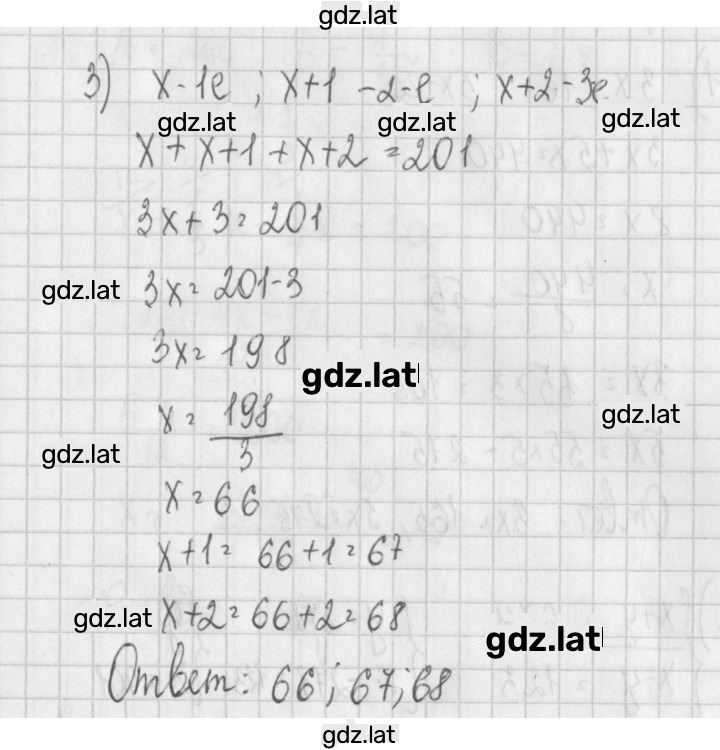 gdz.lat
3) x - 1е ; x+1 - 2-е ; x+2 - 3е
gdz.lat gdz.lat gdz.lat
x + x+1 + x+2 = 201
3x + 3 = 201
gdz.lat 3x = 201-3
3x = 198
gdz.lat
x = 198/3
gdz.lat
gdz.lat
x = 66
x+1 = 66+1 = 67
gdz.lat x+2 = 66+2 = 68
gdz.lat
Ответ: 66; 67; 68
gdz.lat